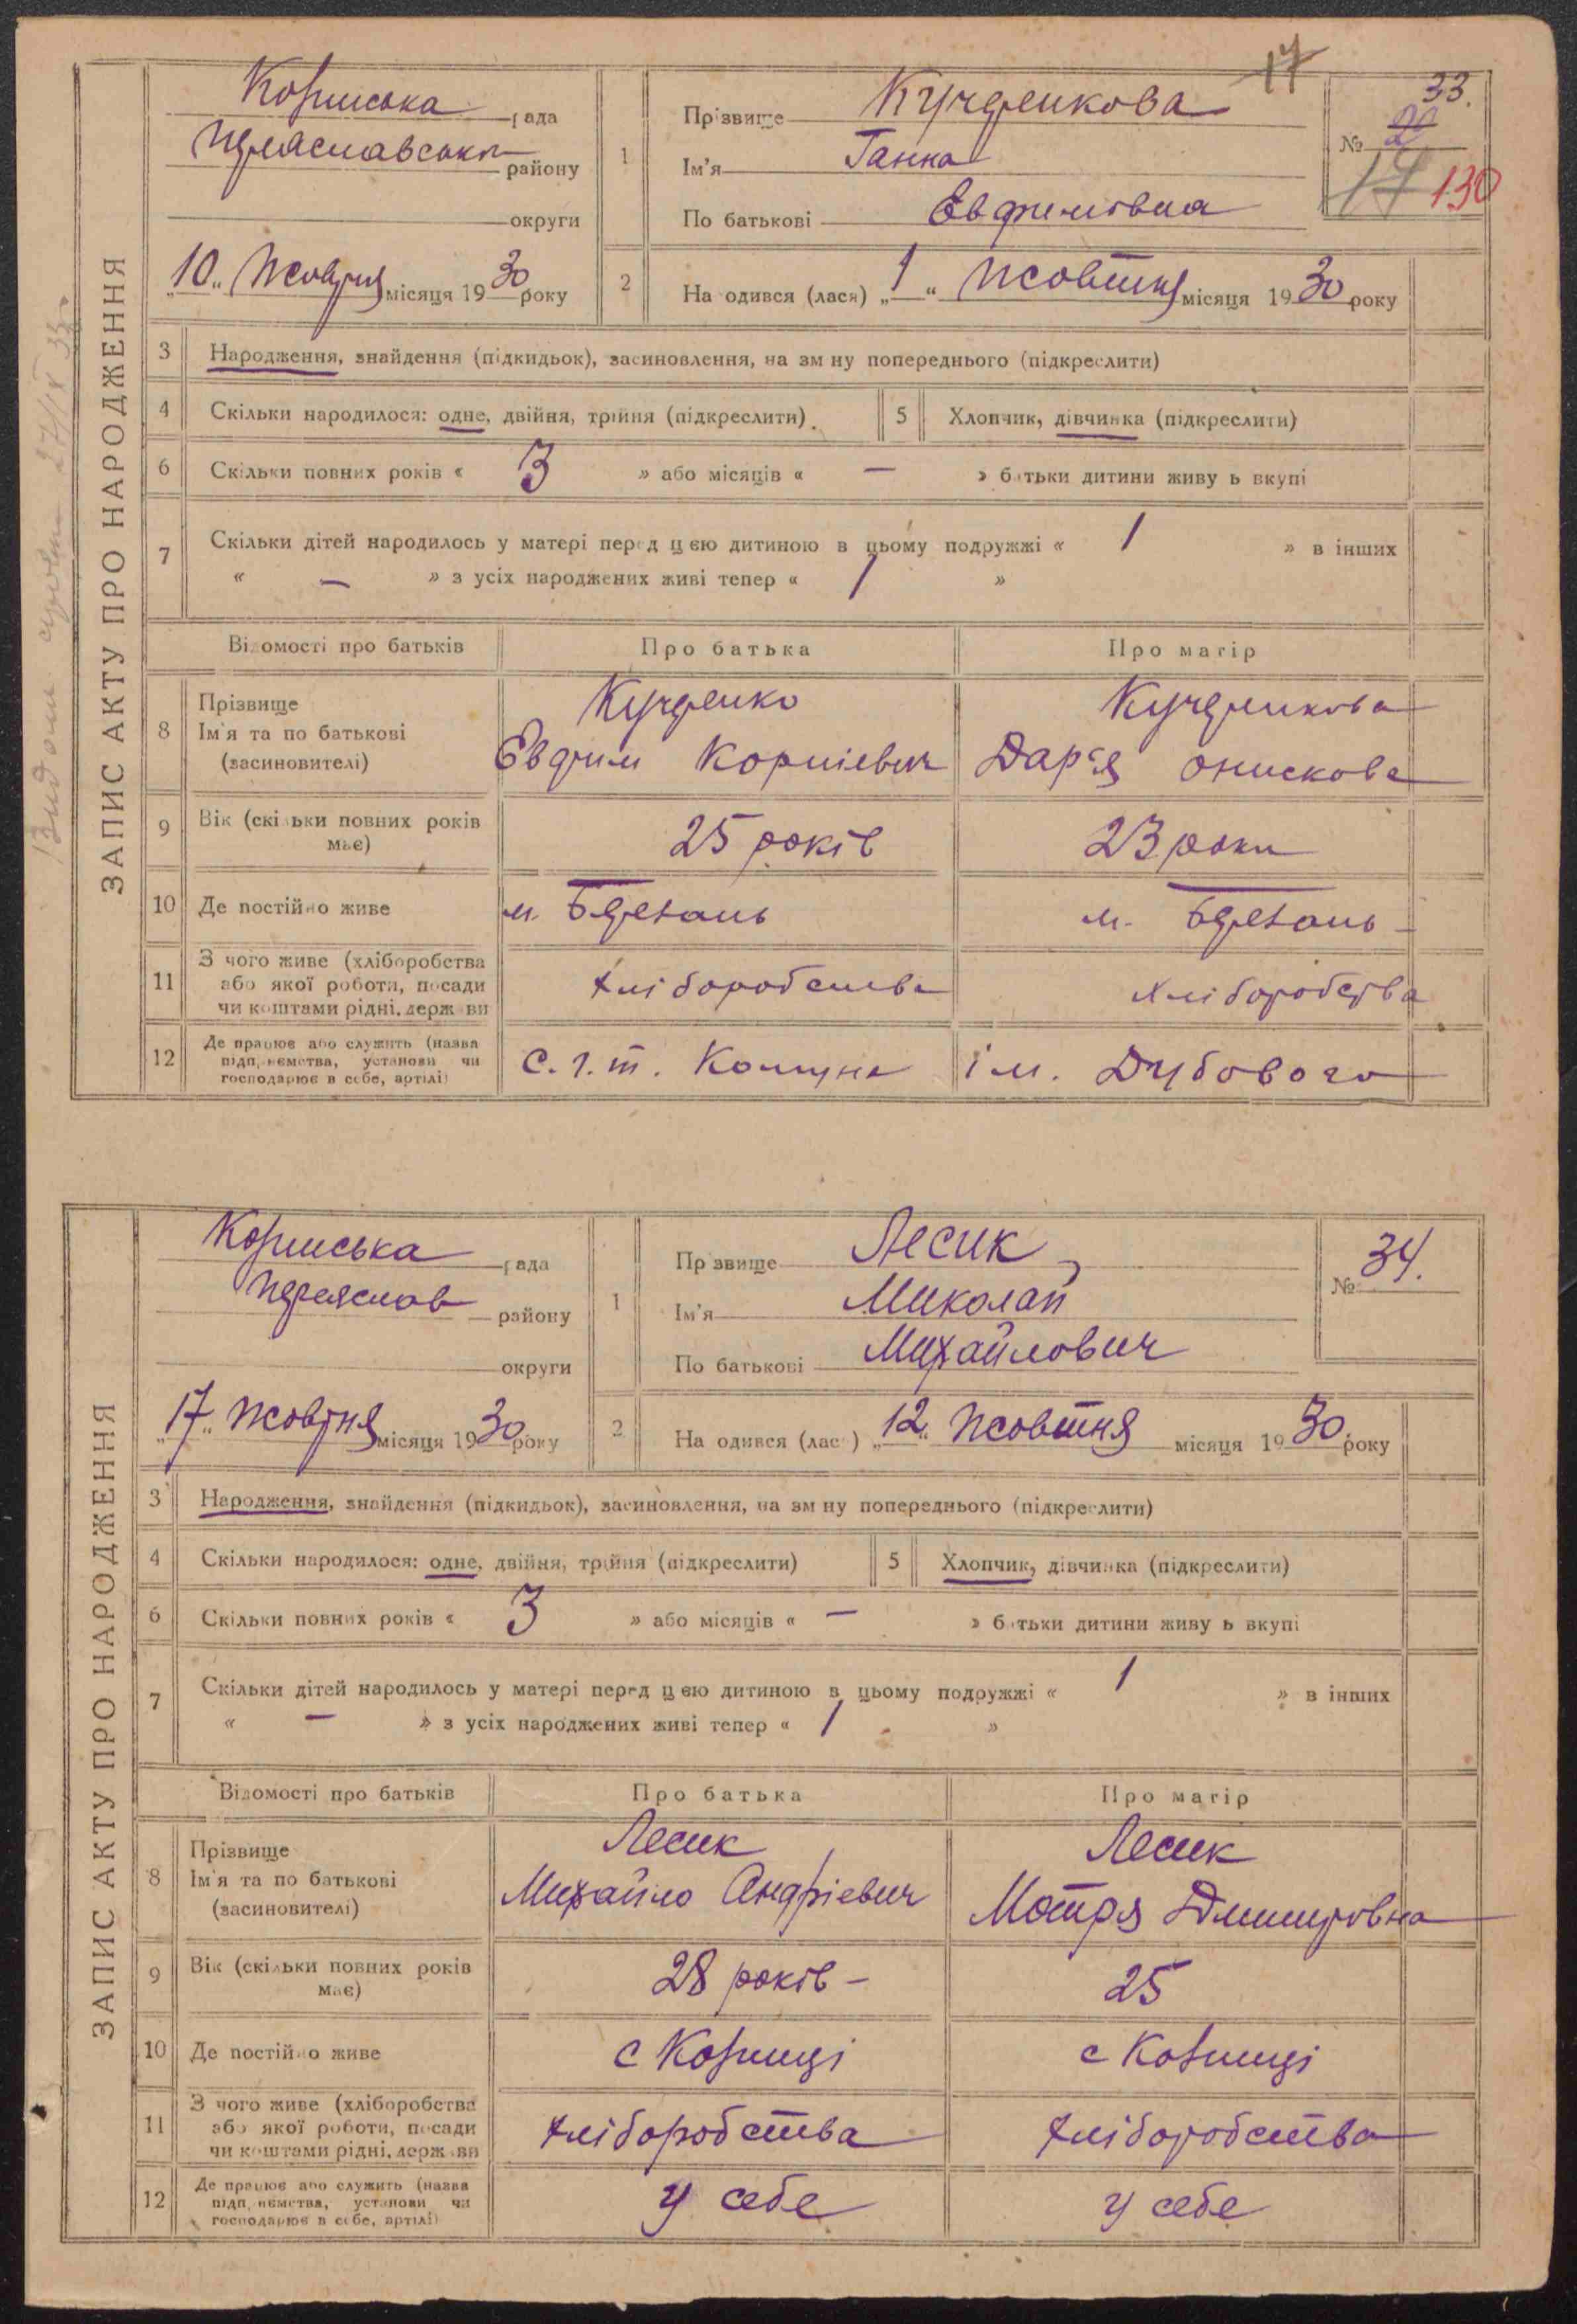 17
ЗАПИС АКТУ ПРО НАРОДЖЕННЯ
Коринська рада
Переяславськ району
округи
„10" Жовтня місяця 1930 року
1
Прізвище Кучеренкова
Ім'я Ганна
По батькові Евфимовна
33.
№ 20
17 130
2 На одився (лася) „1" Жовтня місяця 1930 року
3 Народження, знайдення (підкидьок), засиновлення, на зм ну попереднього (підкреслити)
4 Скільки народилося: одне, двійня, трійня (підкреслити). 5 Хлопчик, дівчинка (підкреслити)
6 Скільки повних років « 3 » або місяців « — » батьки дитини живу ь вкупі
7 Скільки дітей народилось у матері перед цею дитиною в цьому подружжі « 1 » в інших
« — » з усіх народжених живі тепер « 1 »
Відомості про батьків Про батька Про матір
8 Прізвище
Ім'я та по батькові
(засиновителі)
Кучеренко
Евфим Корнієвич
Кучеренкова
Дар'я Онискова
9 Вік (скільки повних років має) 25 років 23 роки
10 Де постійно живе м. Березань м. Березань
11 З чого живе (хліборобства
або якої роботи, посади
чи коштами рідні, держави
хліборобства хліборобства
12 Де працює або служить (назва
підприємства, установи чи
господарює в себе, артілі)
С.г.т. Комуна ім. Дубового
ЗАПИС АКТУ ПРО НАРОДЖЕННЯ
Коринська рада
Переяслав району
округи
„17" Жовтня місяця 1930 року
1
Пр звище Лесик
Ім'я Миколай
По батькові Михайлович
№ 34.
2 На одився (лас ) „12" Жовтня місяця 1930 року
3 Народження, знайдення (підкидьок), засиновлення, на зм ну попереднього (підкреслити)
4 Скільки народилося: одне, двійня, трійня (підкреслити) 5 Хлопчик, дівчинка (підкреслити)
6 Скільки повних років « 3 » або місяців « — » батьки дитини живу ь вкупі
7 Скільки дітей народилось у матері перед цею дитиною в цьому подружжі « 1 » в інших
« — » з усіх народжених живі тепер « 1 »
Відомості про батьків Про батька Про матір
8 Прізвище
Ім'я та по батькові
(засиновителі)
Лесик
Михайло Андрієвич
Лесик
Мотря Дмитровна
9 Вік (скільки повних років має) 28 років – 25
10 Де постійно живе с Коринці с Коринці
11 З чого живе (хліборобства
або якої роботи, посади
чи коштами рідні, держави
хліборобства хліборобства
12 Де працює або служить (назва
підприємства, установи чи
господарює в себе, артілі)
у себе у себе